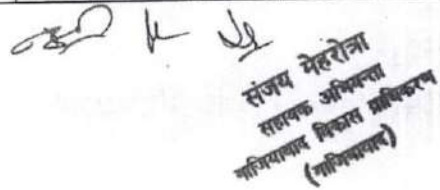 संजय मेहरोत्रा
सहायक अभियन्ता
गाजियाबाद विकास प्राधिकरण
(गाजियाबाद)